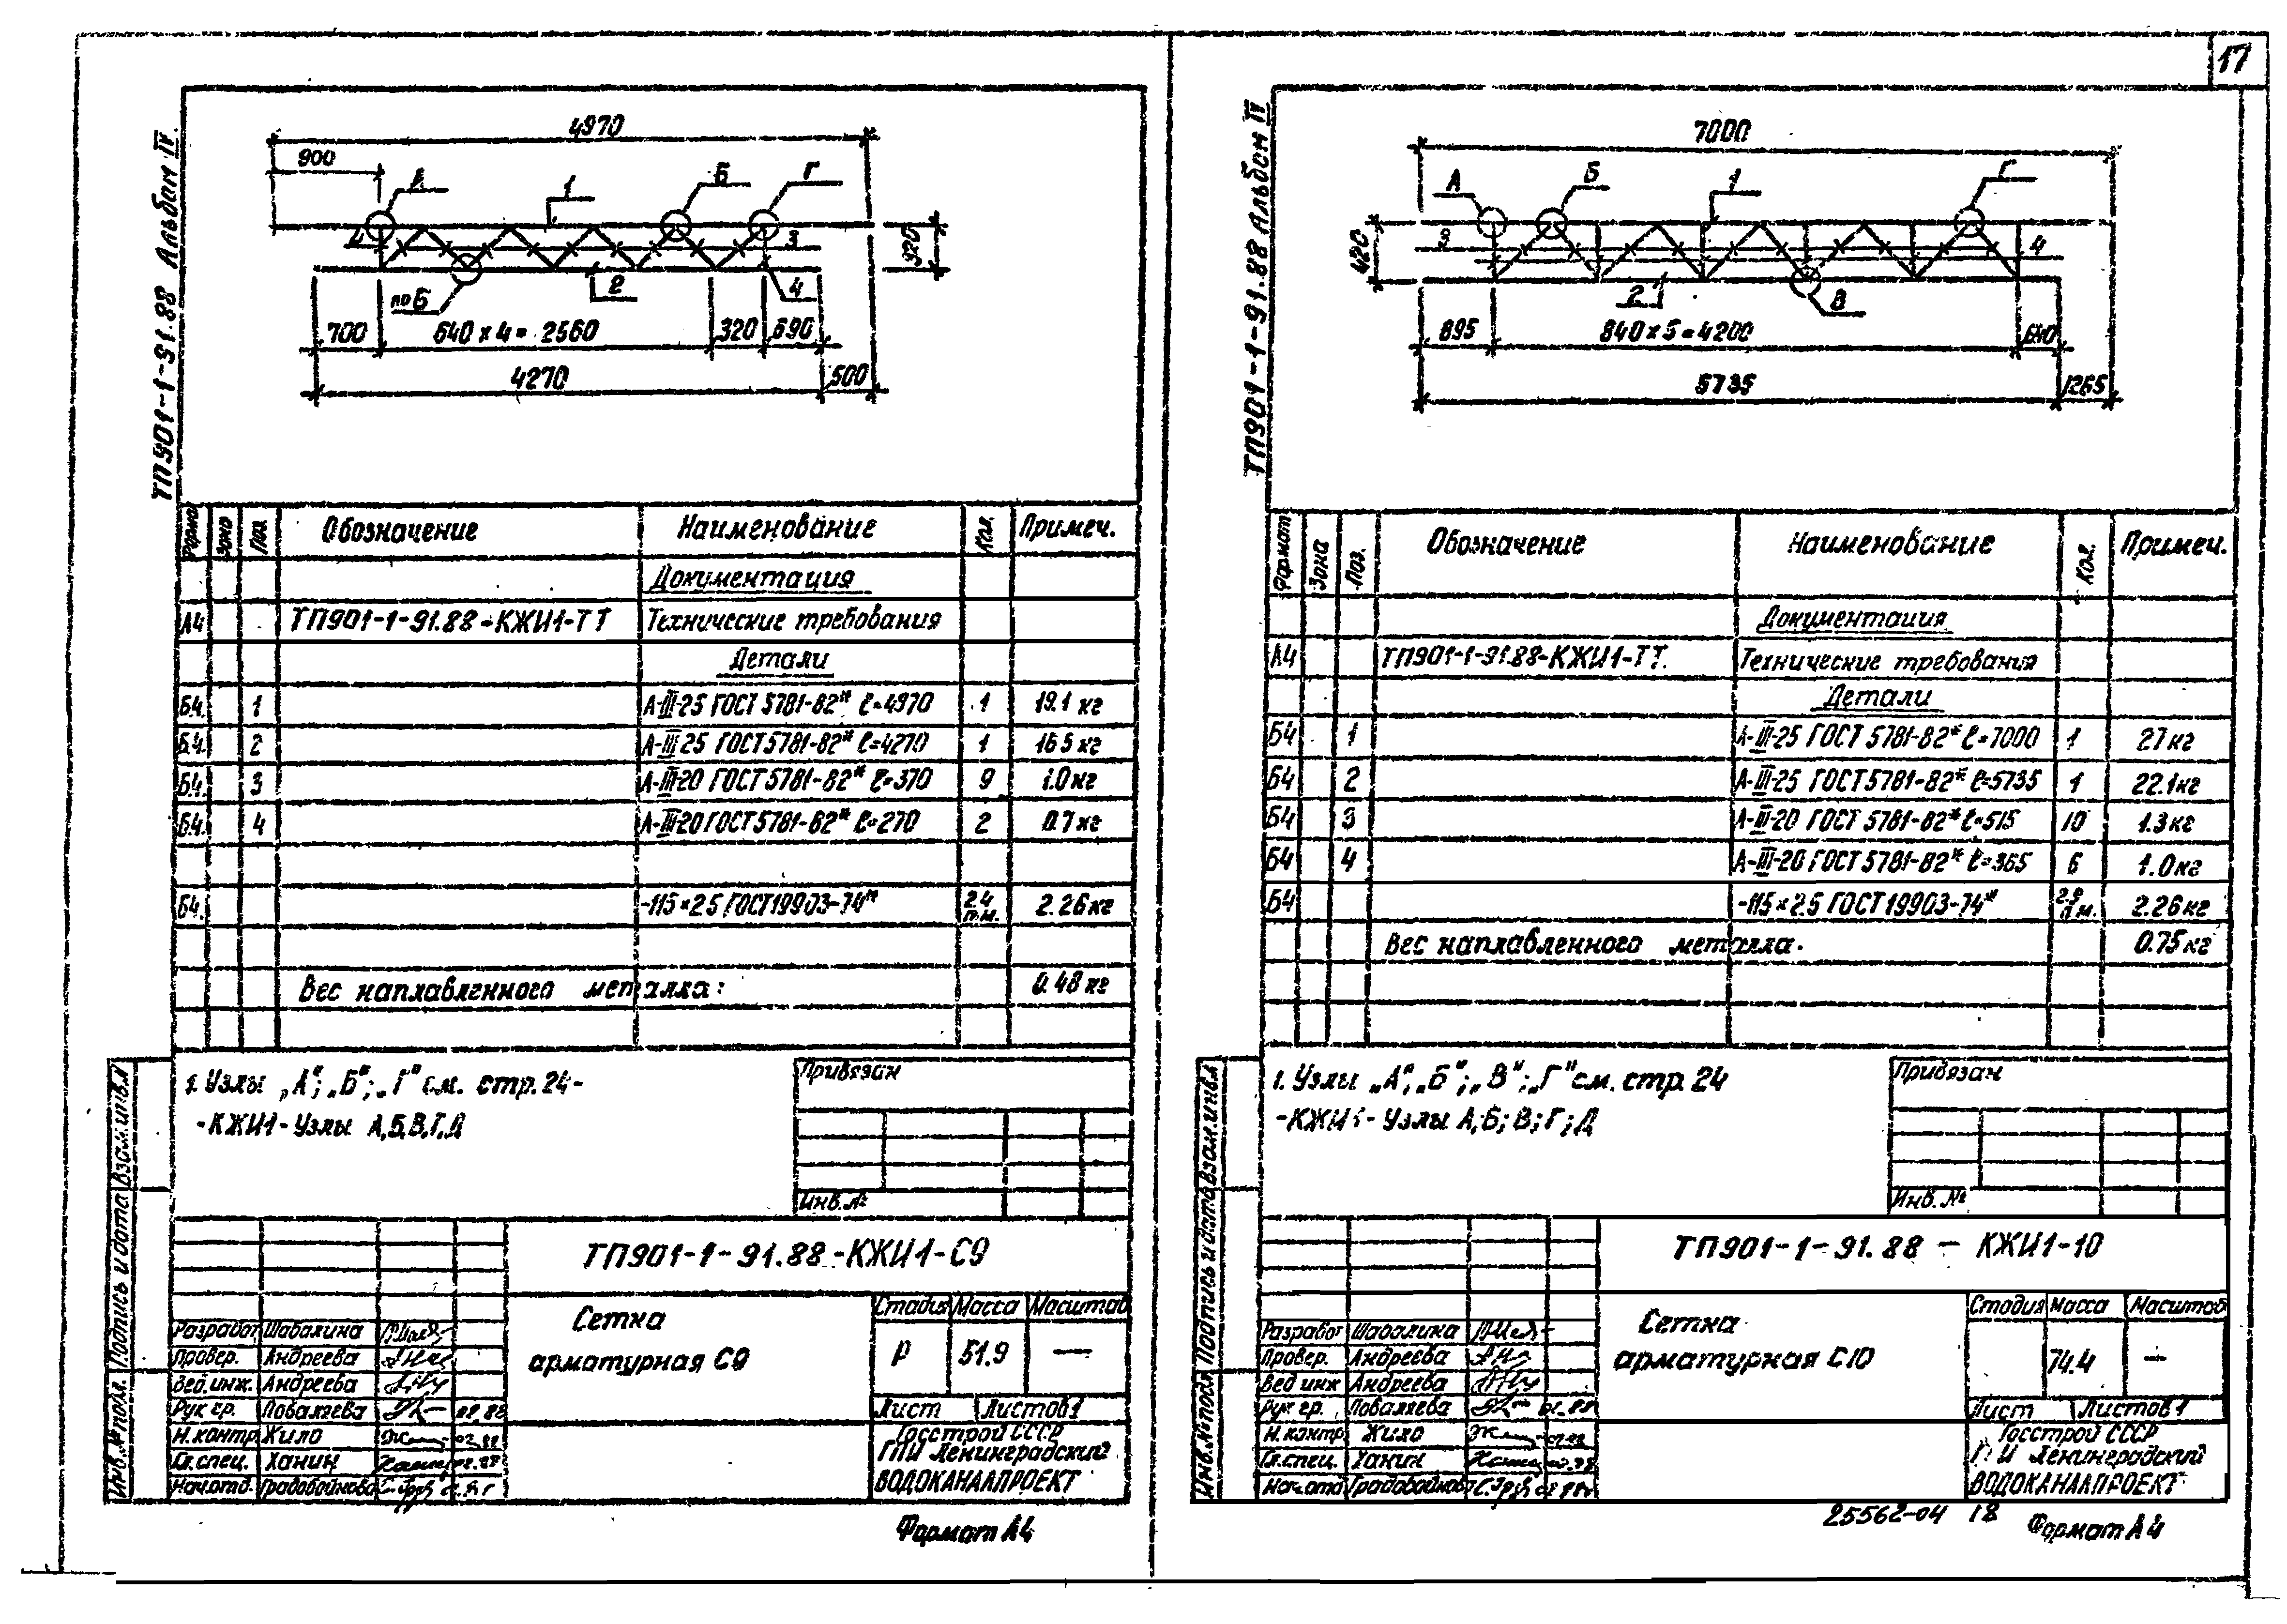 17
ТП901-1-91.88 Альбом IV.
4970
900
А
1
Б
Г
4
3
320
по Б
2
4
700
640 x 4 = 2560
320
690
4270
500
Зона
Поз.
Обозначение
Наименование
Кол.
Примеч.
Документация
А4 ТП901-1-91.88-КЖИ1-ТТ Технические требования
Детали
Б4. 1 А-III-25 ГОСТ 5781-82* ℓ=4970 1 19.1 кг
Б.4. 2 А-III-25 ГОСТ 5781-82* ℓ=4270 1 16 5 кг
Б.4. 3 А-III-20 ГОСТ 5781-82* ℓ=370 9 1.0 кг
Б4. 4 А-III-20 ГОСТ 5781-82* ℓ=270 2 0.7 кг
Б4. -115×2.5 ГОСТ 19903-74* 2.4 п.м. 2.26 кг
Вес наплавленного металла: 0.48 кг
1. Узлы „А"; „Б"; „Г" см. стр. 24-
-КЖИ1- Узлы А,Б,В,Г,Д
Привязан
Инв.№
Взам.инв.№
Подпись и дата
Инв.№подл.
ТП901-1-91.88-КЖИ1-С9
Сетка
арматурная С9
Стадия Масса Масштаб
Р 51.9 —
Лист Листов 1
Разработ Шабалина
Провер. Андреева
Вед.инж. Андреева
Рук гр. Поваляева 02.88
Н.контр Жило
Гл.спец. Ханин
Нач.отд. Градобойнова
Госстрой СССР
ГПИ Ленинградский
ВОДОКАНАЛПРОЕКТ
Формат А4
ТП901-1-91.88 Альбом IV
7000
А
Б
1
Г
420
3
4
2
В
895
840 x 5 = 4200
640
5735
1265
Формат
Зона
Поз.
Обозначение
Наименование
Кол.
Примеч.
Документация
А4 ТП901-1-91.88-КЖИ1-ТТ. Технические требования
Детали
Б4 1 А-III-25 ГОСТ 5781-82* ℓ=7000 1 27 кг
Б4 2 А-III-25 ГОСТ 5781-82* ℓ=5735 1 22.1 кг
Б4 3 А-III-20 ГОСТ 5781-82* ℓ=515 10 1.3 кг
Б4 4 А-III-20 ГОСТ 5781-82* ℓ=365 6 1.0 кг
Б4 -115×2.5 ГОСТ 19903-74* п.м. 2.26 кг
Вес наплавленного металла. 0.75 кг
1. Узлы „А"; „Б"; „В"; „Г" см. стр. 24
-КЖИ1- Узлы А; Б; В; Г; Д
Привязан
Инв. №
Взам.инв.№
Подпись и дата
Инв.№подл
ТП901-1-91.88 - КЖИ1-10
Сетка
арматурная С10
Стадия Масса Масштаб
74.4 —
Лист Листов 1
Разработ Шабалина
Провер. Андреева
Вед инж Андреева
Рук гр. Поваляева
Н.контр Жило
Гл.спец. Ханин
Нач.отд Градобойнова
Госстрой СССР
ГПИ Ленинградский
ВОДОКАНАЛПРОЕКТ
25562-04 18
Формат А4